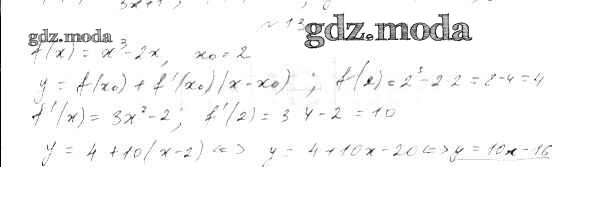 № 13
gdz.moda
gdz.moda
f(x) = x³ - 2x, x₀ = 2
y = f(x₀) + f'(x₀)(x - x₀) ; f(2) = 2³ - 2 2 = 8 - 4 = 4
f'(x) = 3x² - 2 ; f'(2) = 3 4 - 2 = 10
y = 4 + 10(x - 2) <=> y = 4 + 10x - 20 <=> y = 10x - 16